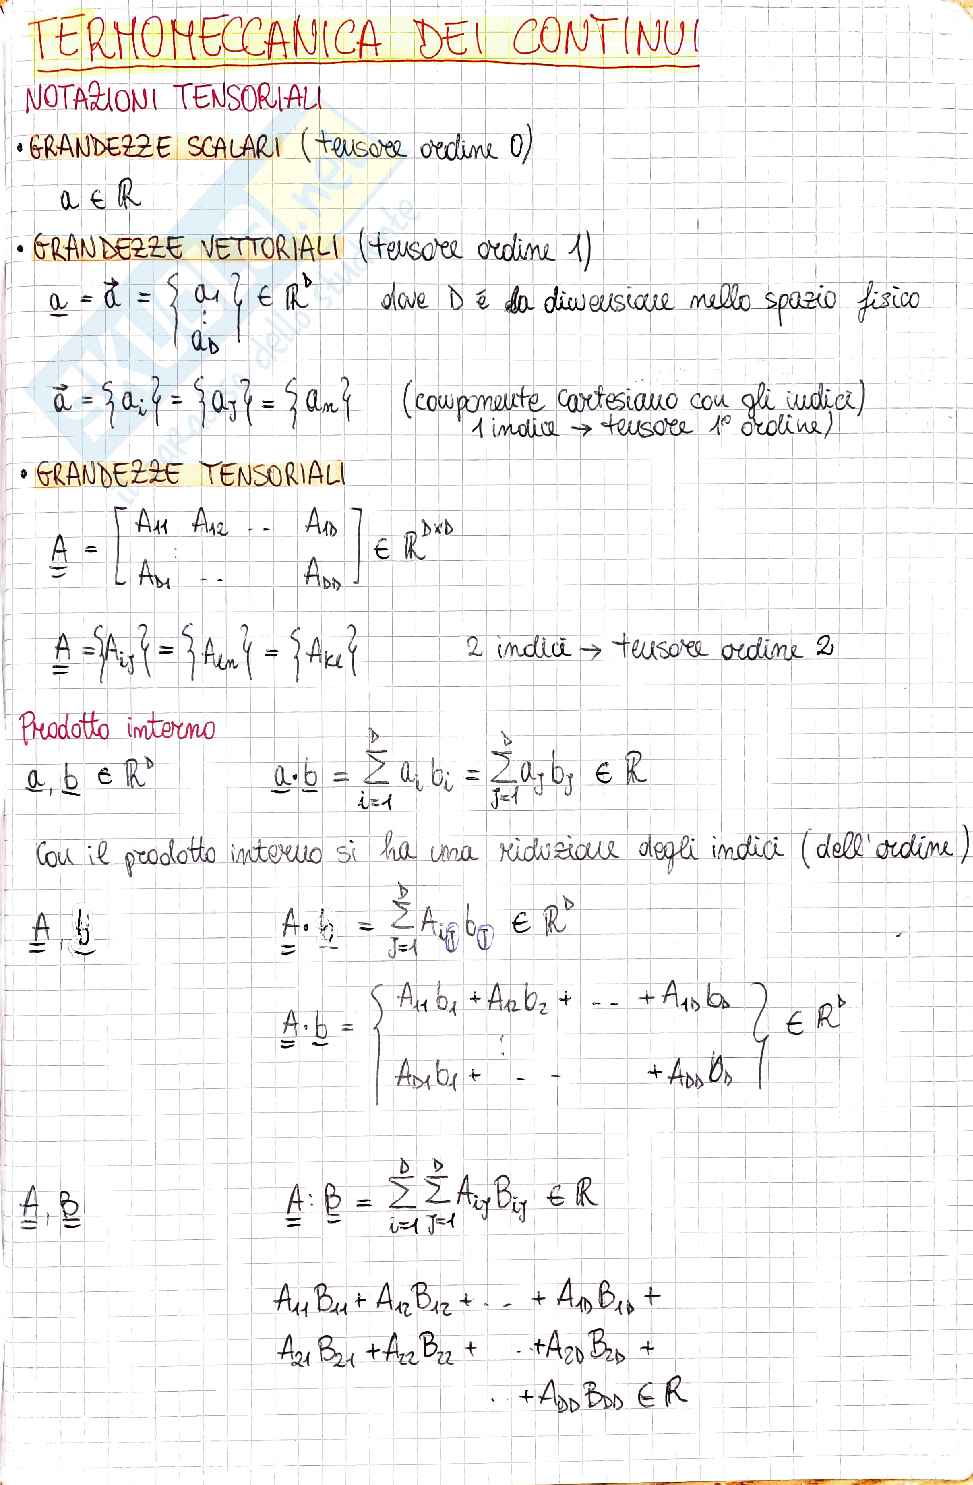 TERMOMECCANICA DEI CONTINUI
NOTAZIONI TENSORIALI
• GRANDEZZE SCALARI (tensore ordine 0)
a ∈ ℝ
• GRANDEZZE VETTORIALI (tensore ordine 1)
a̲ = a⃗ = { a₁ ⋮ a_D } ∈ ℝᴰ dove D è la dimensione nello spazio fisico
a⃗ = {a_i} = {a_J} = {a_n} (componente cartesiano con gli indici)
1 indice → tensore 1° ordine)
• GRANDEZZE TENSORIALI
A̳ = [ A₁₁ A₁₂ .. A_1D ⋮ A_D1 .. A_DD ] ∈ ℝ^D×D
A̳ = {A_iJ} = {A_en} = {A_ke} 2 indici → tensore ordine 2
Prodotto interno
a̲, b̲ ∈ ℝᴰ a̲·b̲ = Σ_{i=1}^{D} a_i b_i = Σ_{J=1}^{D} a_J b_J ∈ ℝ
Con il prodotto interno si ha una riduzione degli indici (dell'ordine)
A̳, b̲ A̳·b̲ = Σ_{J=1}^{D} A_iJ b_J ∈ ℝᴰ
A̳·b̲ = { A₁₁b₁ + A₁₂b₂ + -- + A_1D b_D ⋮ A_D1 b₁ + - - + A_DD b_D } ∈ ℝᴰ
A̳, B̳ A̳ : B̳ = Σ_{i=1}^{D} Σ_{J=1}^{D} A_iJ B_iJ ∈ ℝ
A₁₁B₁₁ + A₁₂B₁₂ + . .. + A_1D B_1D +
A₂₁B₂₁ + A₂₂B₂₂ + . . + A_2D B_2D +
. . + A_DD B_DD ∈ ℝ